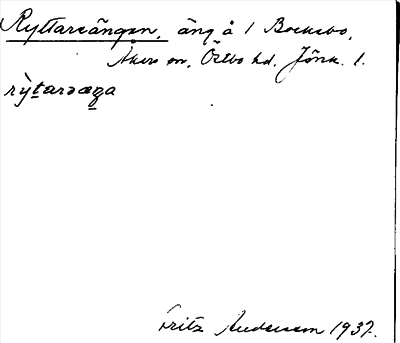 Ryttareängen, äng å 1 Bockebo,
Åkers sn, Östbo hd. Jönk. l.
rỳt̲arəæŋa
Fritz Andersson 1937.